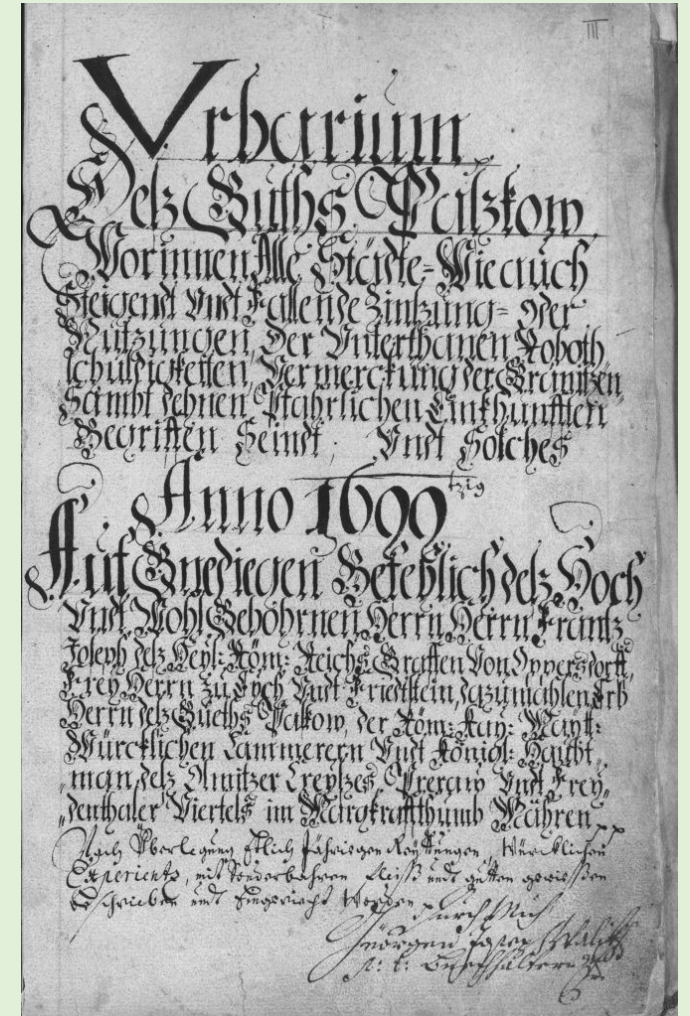 III
Vrbarium
Desz Guths Patzkow
Worinnen Alle Städte= Wie auch
Steigendt Undt Fallende Zinszung= oder
Nutzungen, Der Unterthanen Roboth
schuldigkeiten, Vermerckung der Gränitzen
Sambt dehnen Pfahrlichen Einkhunfften
Begriffen Seindt; Undt Solches
Anno 1699 tzig
Auf Gnediegen Befehlich desz Hoch
Undt Wohl Gebohrnen Herrn Herrn Frantz
Joseph desz Heyl: Röm: Reichs Graffen Von Oppersdorff,
Frey Herrn zu Eych Undt Friedtstein, dazumahlen Erb
Herrn desz Gueths Patkow, der Röm: Kay: Maytt:
Würcklichen Cammerern Undt Königl: Haubt
man, desz Olmitzer Creyszes, Prerauw Undt Frey
denthaler Viertels im Marggraffthumb Mähren
Nach Überlegung Etlich Jähriegen Reyttungen, Würcklichen
Experientz, mit sonderbahren fleisz undt gutten gewissen
beschrieben undt Eingericht Worden durch Mich
Geörgen Joseph
Buechhaltern